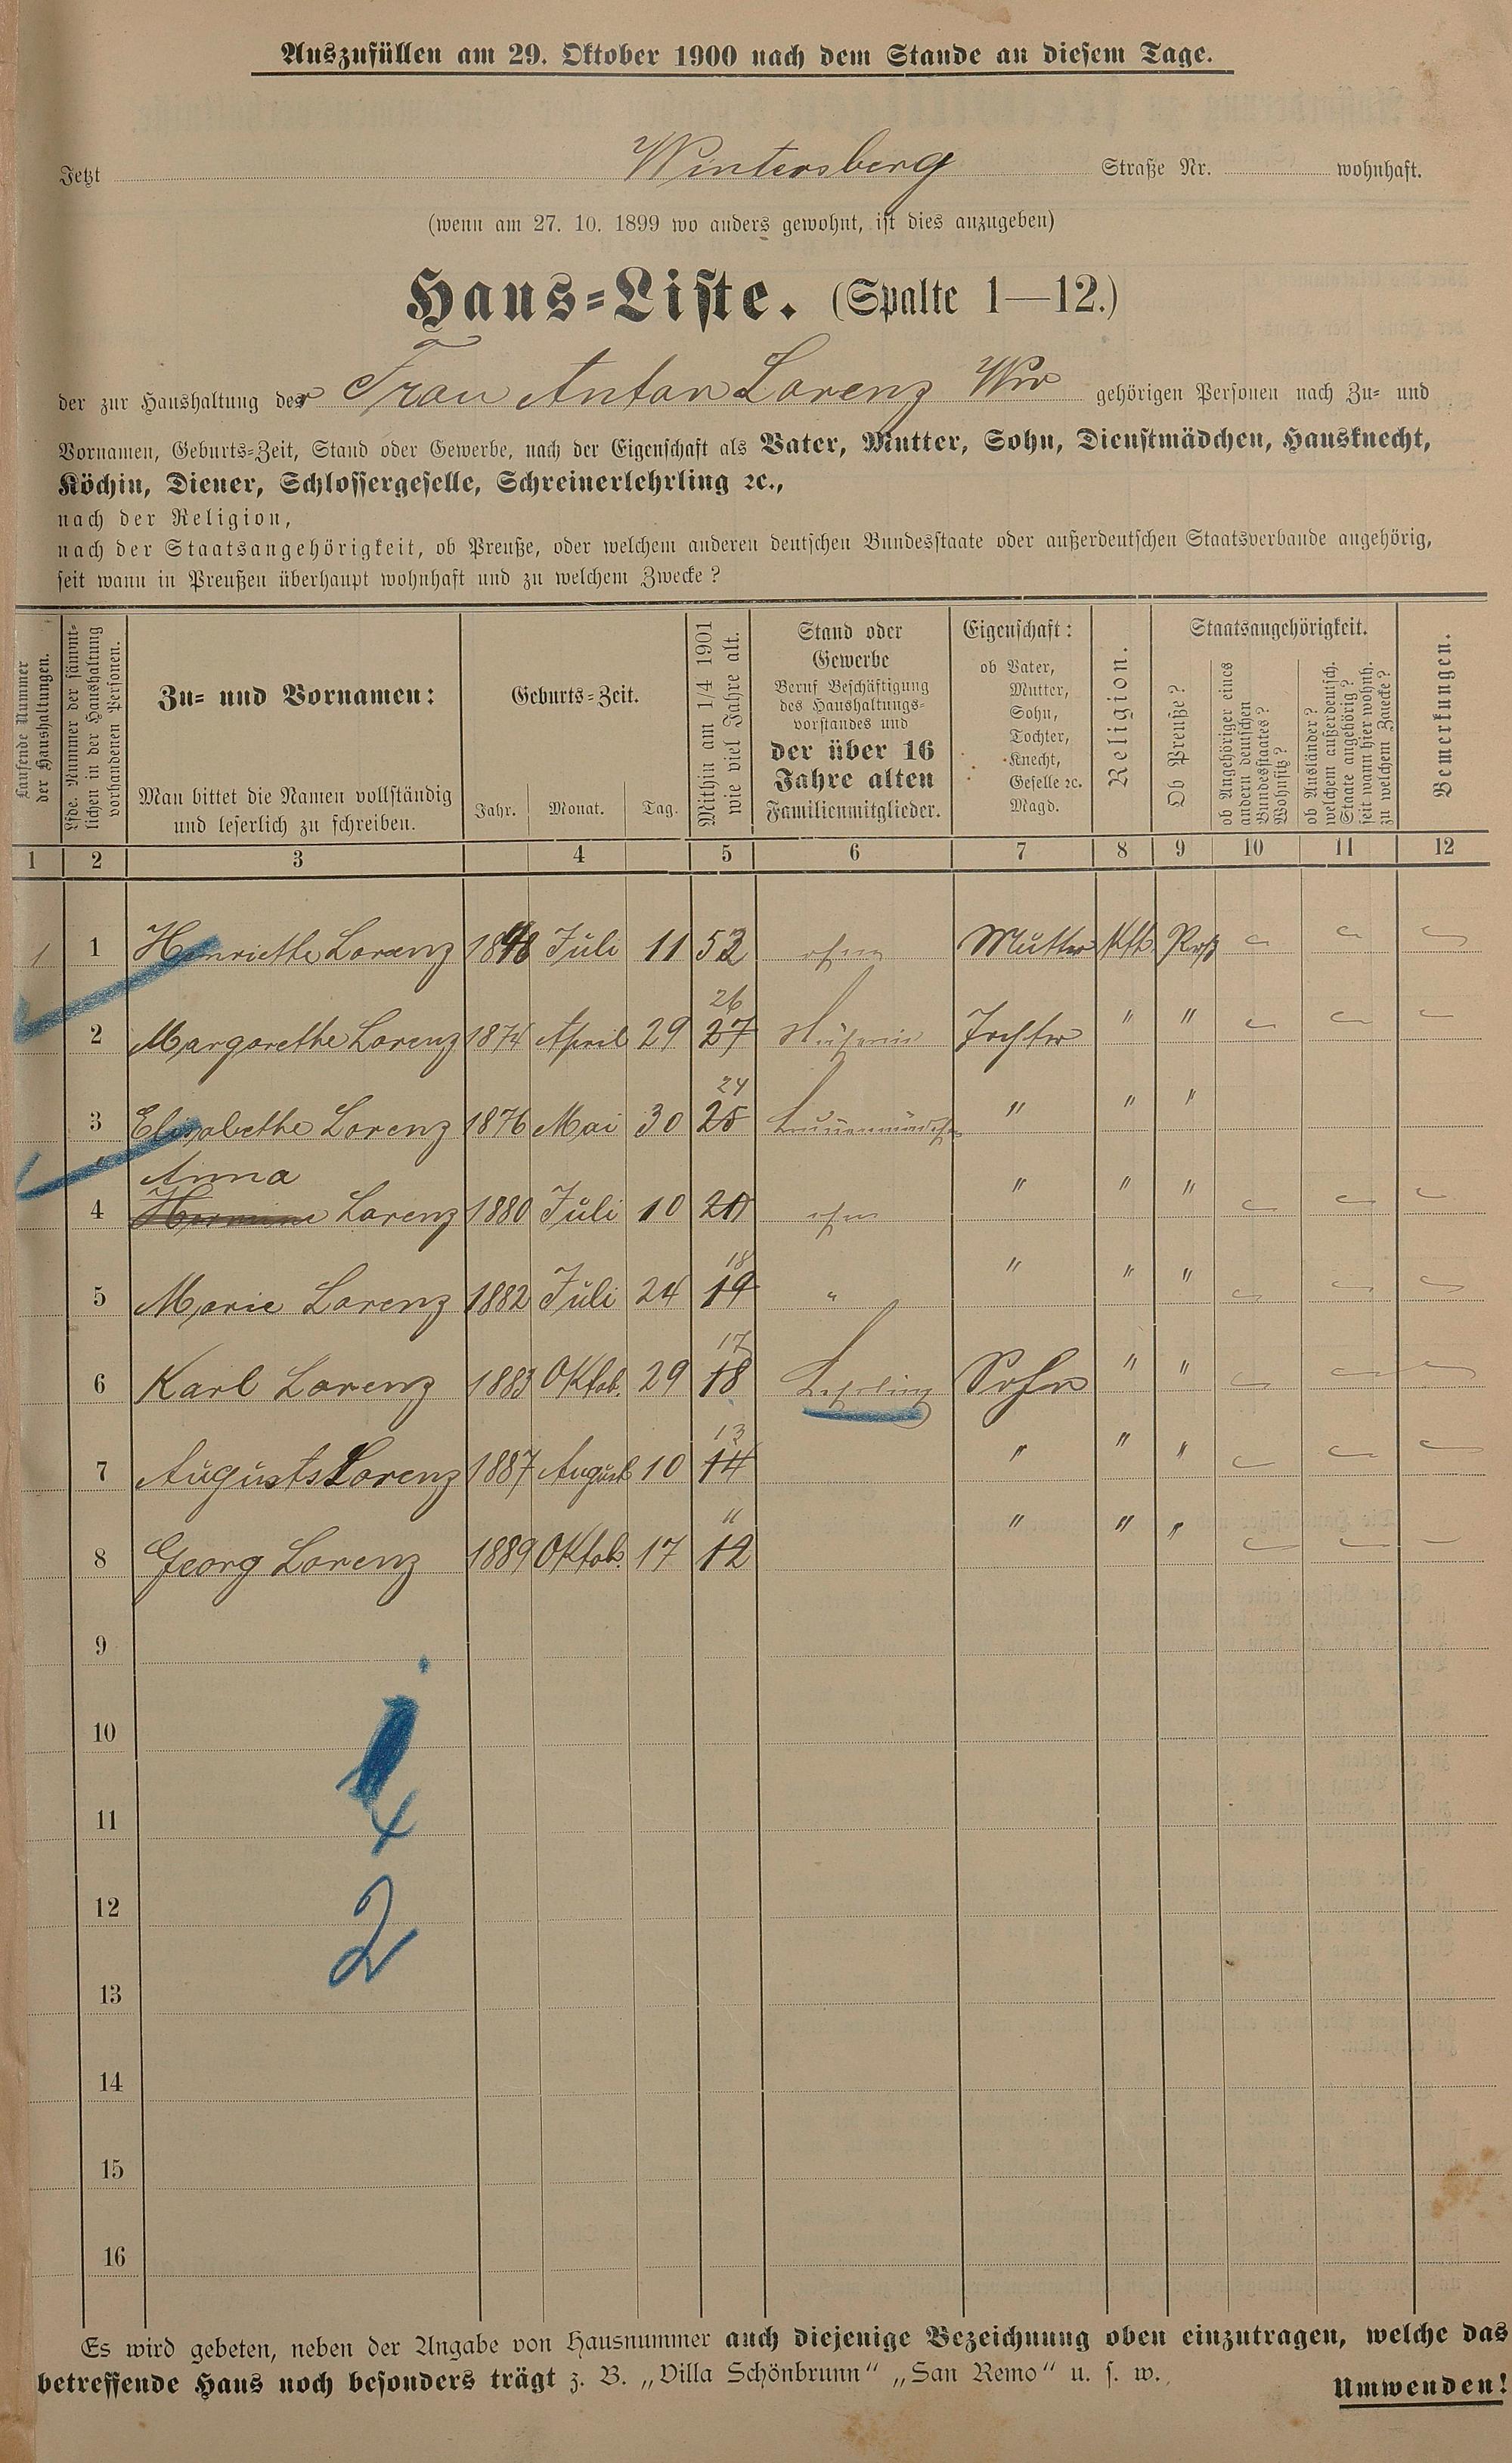 Auszufüllen am 29. Oktober 1900 nach dem Stande an diesem Tage.
Jetzt Wintersberg Straße Nr. wohnhaft.
(wenn am 27. 10. 1899 wo anders gewohnt, ist dies anzugeben)
Haus-Liste. (Spalte 1—12.)
der zur Haushaltung der Frau Anton Lorenz Ww gehörigen Personen nach Zu- und
Vornamen, Geburts-Zeit, Stand oder Gewerbe, nach der Eigenschaft als Vater, Mutter, Sohn, Dienstmädchen, Hausknecht,
Köchin, Diener, Schlossergeselle, Schreinerlehrling ꝛc.,
nach der Religion,
nach der Staatsangehörigkeit, ob Preuße, oder welchem anderen deutschen Bundesstaate oder außerdeutschen Staatsverbande angehörig,
seit wann in Preußen überhaupt wohnhaft und zu welchem Zwecke?
Laufende Nummer
der Haushaltungen.
Lfde. Nummer der sämmt-
lichen in der Haushaltung
vorhandenen Personen.
Zu- und Vornamen:
Man bittet die Namen vollständig
und leserlich zu schreiben.
Geburts-Zeit.
Jahr. Monat. Tag.
Mithin am 1/4 1901
wie viel Jahre alt.
Stand oder
Gewerbe
Beruf Beschäftigung
des Haushaltungs-
vorstandes und
der über 16
Jahre alten
Familienmitglieder.
Eigenschaft:
ob Vater,
Mutter,
Sohn,
Tochter,
Knecht,
Geselle ꝛc.
Magd.
Religion.
Staatsangehörigkeit.
Ob Preuße?
ob Angehöriger eines
andern deutschen
Bundesstaates?
Wohnsitz?
ob Ausländer?
welchem außerdeutsch.
Staate angehörig?
seit wann hier wohnh.
zu welchem Zwecke?
Bemerkungen.
1 2 3 4 5 6 7 8 9 10 11 12
1 1 Henriette Lorenz 1848 Juli 11 52 ohne Mutter Kth. Prß
26
2 Margarethe Lorenz 1874 April 29 27 Tochter " "
24
3 Elisabethe Lorenz 1876 Mai 30 25 Brunnenmädchen " " "
Anna
4 Hermine Lorenz 1880 Juli 10 20 ohne " " "
18
5 Marie Lorenz 1882 Juli 24 19 " " " "
17
6 Karl Lorenz 1883 Oktob. 29 18 Lehrling Sohn " "
13
7 August Lorenz 1887 August 10 14 " " "
11
8 Georg Lorenz 1889 Oktob. 17 12 " " "
9
10
11 4
12 2
13
14
15
16
Es wird gebeten, neben der Angabe von Hausnummer auch diejenige Bezeichnung oben einzutragen, welche das
betreffende Haus noch besonders trägt z. B. „Villa Schönbrunn“ „San Remo“ u. s. w.
Umwenden!